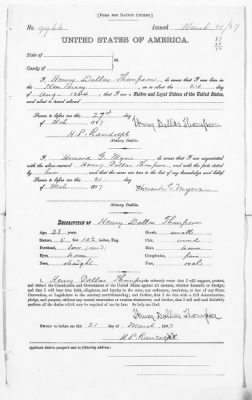 [FORM FOR NATIVE CITIZEN.]
No. Issued March 87
UNITED STATES OF AMERICA.
State of
County of
I, Henry Dallas Thompson, do swear that I was born in
New Jersey on the
that I am a Native and Loyal Citizen of the United States,
and about to travel abroad
Sworn to before me this
of 1887 Henry Dallas Thompson
H. P. Randolph
Notary Public.
I, Howard Myers, do swear that I am acquainted
with the above-named Henry Dallas Thompson, and with the facts stated
by him, and that the same are true to the best of my knowledge and belief.
Sworn to before me this
of 1887
Notary Public.
DESCRIPTION OF Henry Dallas Thompson
Age: 23 years. Mouth: small
Stature: 5 feet inches, Eng. Chin: round
Forehead: low Hair: brown
Eyes: Complexion: fair
Nose: straight Face: oval
I, Henry Dallas Thompson, do solemnly swear that I will support, protect,
and defend the Constitution and Government of the United States against all enemies, whether domestic or foreign;
and that I will bear true faith, allegiance, and loyalty to the same, any ordinance, resolution, or law of any State,
Convention, or Legislature to the contrary notwithstanding; and further, that I do this with a full determination,
pledge, and purpose, without any mental reservation or evasion whatsoever; and further, that I will well and faithfully
perform all the duties which may be required of me by law. So help me God.
Henry Dallas Thompson
Sworn to before me this 21 of March, 1887
H. P. Randolph
Applicant desires passport sent to following address: